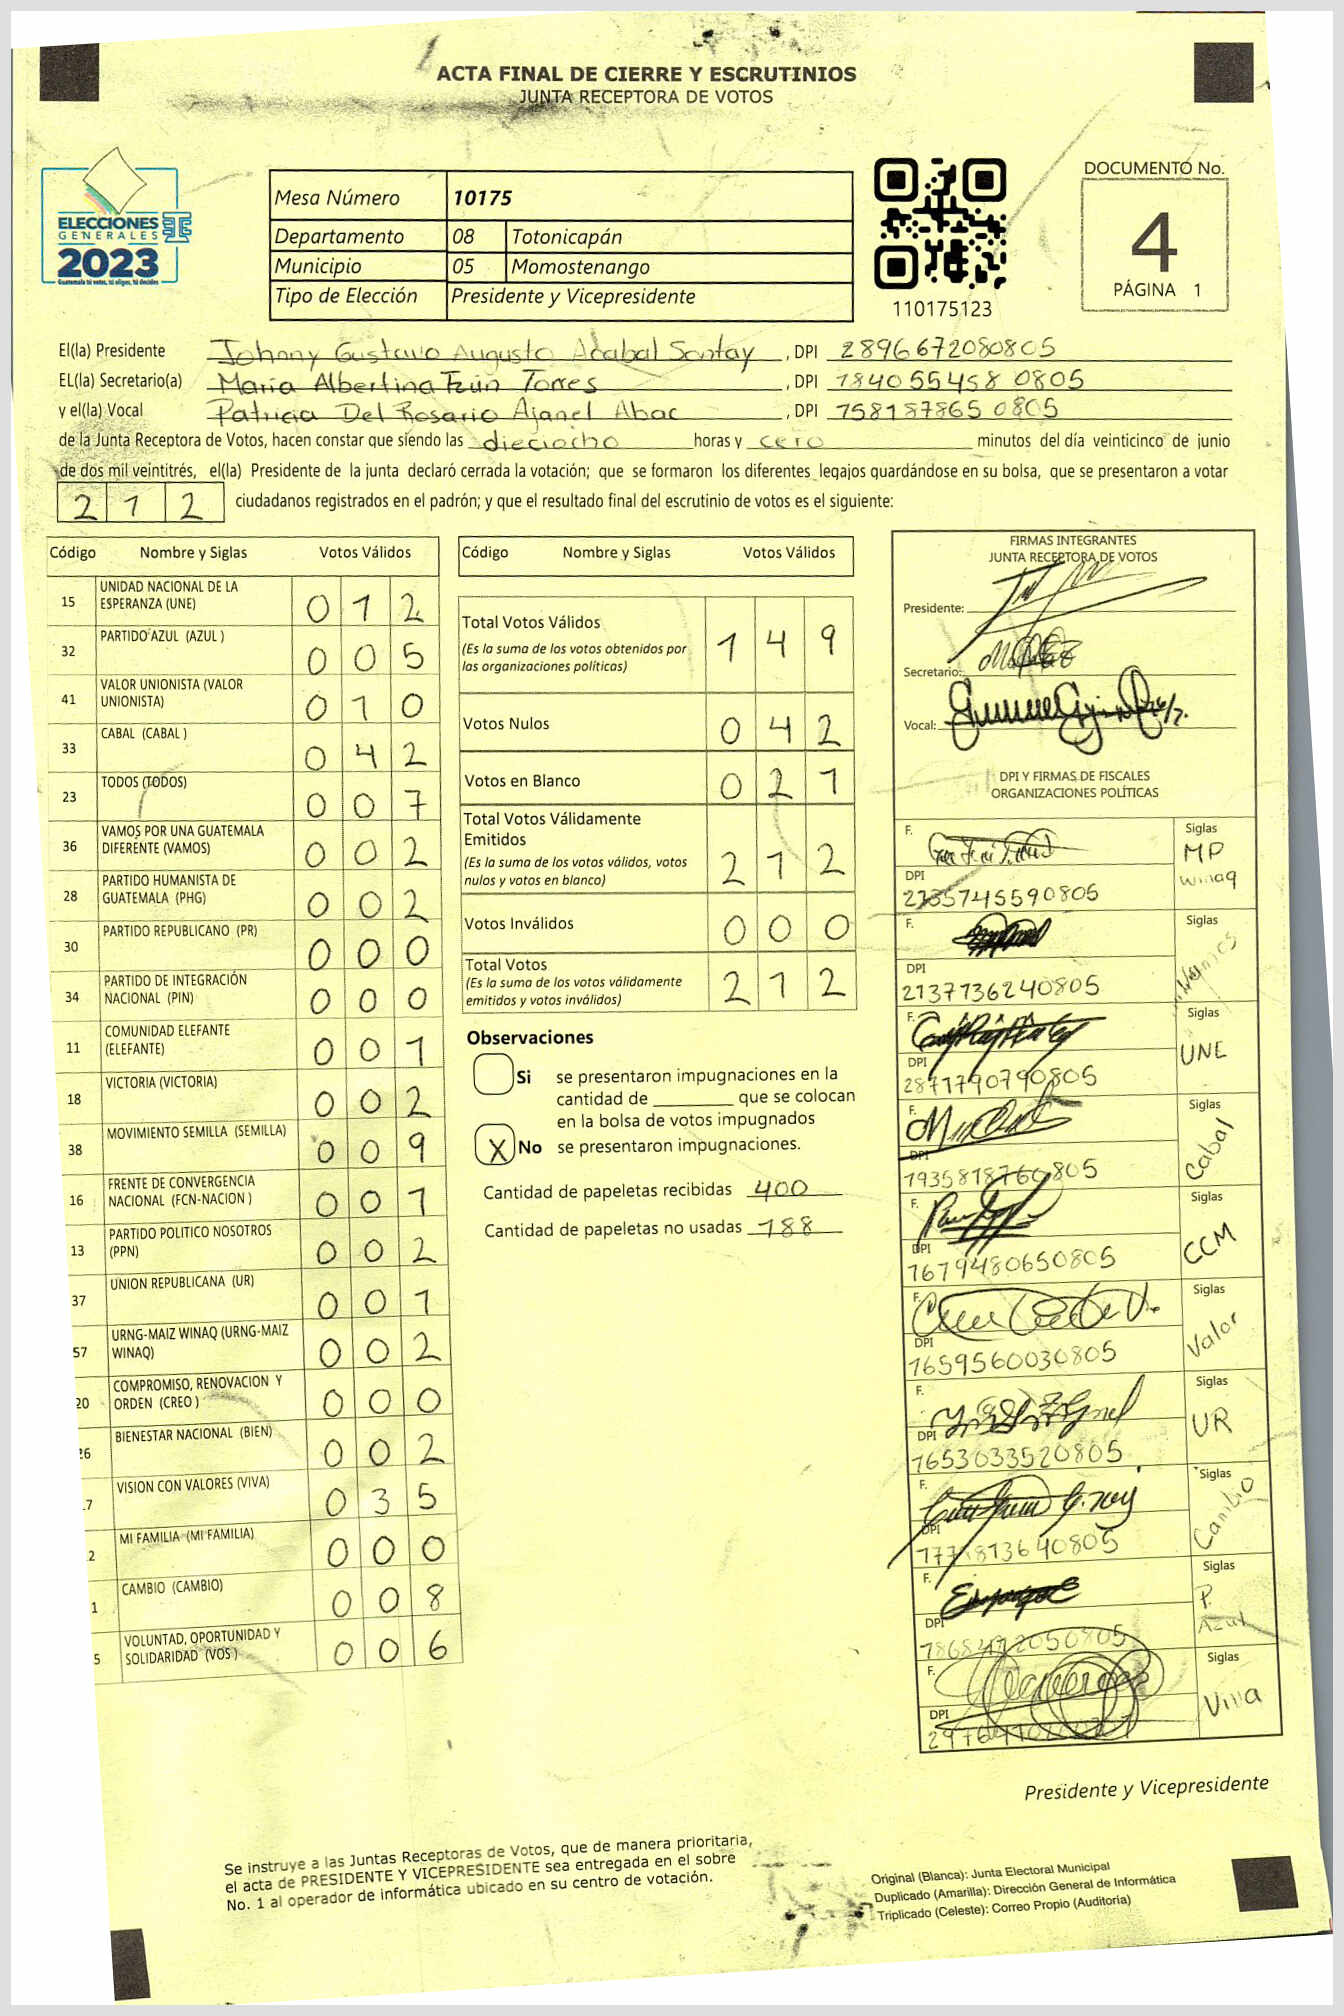 ACTA FINAL DE CIERRE Y ESCRUTINIOS
JUNTA RECEPTORA DE VOTOS
ELECCIONES
GENERALES
2023
Guatemala tú votas, tú eliges, tú decides
Mesa Número 10175
Departamento 08 Totonicapán
Municipio 05 Momostenango
Tipo de Elección Presidente y Vicepresidente
110175123
DOCUMENTO No.
4
PÁGINA 1
El(la) Presidente Johnny Gustavo Augusto Acabal Sontay, DPI 2896672080805
EL(la) Secretario(a) María Albertina Tzún Torres, DPI 1840554580805
y el(la) Vocal Patricia Del Rosario Ajanel Abac, DPI 1581878650805
de la Junta Receptora de Votos, hacen constar que siendo las dieciocho horas y cero minutos del día veinticinco de junio
de dos mil veintitrés, el(la) Presidente de la junta declaró cerrada la votación; que se formaron los diferentes legajos guardándose en su bolsa, que se presentaron a votar
212 ciudadanos registrados en el padrón; y que el resultado final del escrutinio de votos es el siguiente:
Código Nombre y Siglas Votos Válidos
15 UNIDAD NACIONAL DE LA ESPERANZA (UNE) 012
32 PARTIDO AZUL (AZUL ) 005
41 VALOR UNIONISTA (VALOR UNIONISTA) 010
33 CABAL (CABAL ) 042
23 TODOS (TODOS) 007
36 VAMOS POR UNA GUATEMALA DIFERENTE (VAMOS) 002
28 PARTIDO HUMANISTA DE GUATEMALA (PHG) 002
30 PARTIDO REPUBLICANO (PR) 000
34 PARTIDO DE INTEGRACIÓN NACIONAL (PIN) 000
11 COMUNIDAD ELEFANTE (ELEFANTE) 001
18 VICTORIA (VICTORIA) 002
38 MOVIMIENTO SEMILLA (SEMILLA) 009
16 FRENTE DE CONVERGENCIA NACIONAL (FCN-NACION ) 001
13 PARTIDO POLITICO NOSOTROS (PPN) 002
37 UNION REPUBLICANA (UR) 001
57 URNG-MAIZ WINAQ (URNG-MAIZ WINAQ) 002
20 COMPROMISO, RENOVACION Y ORDEN (CREO ) 000
26 BIENESTAR NACIONAL (BIEN) 002
7 VISION CON VALORES (VIVA) 035
2 MI FAMILIA (MI FAMILIA) 000
1 CAMBIO (CAMBIO) 008
5 VOLUNTAD, OPORTUNIDAD Y SOLIDARIDAD (VOS ) 006
Código Nombre y Siglas Votos Válidos
Total Votos Válidos 149
(Es la suma de los votos obtenidos por
las organizaciones políticas)
Votos Nulos 042
Votos en Blanco 021
Total Votos Válidamente
Emitidos 212
(Es la suma de los votos válidos, votos
nulos y votos en blanco)
Votos Inválidos 000
Total Votos 212
(Es la suma de los votos válidamente
emitidos y votos inválidos)
Observaciones
Si se presentaron impugnaciones en la
cantidad de ________ que se colocan
en la bolsa de votos impugnados
X No se presentaron impugnaciones.
Cantidad de papeletas recibidas 400
Cantidad de papeletas no usadas 188
FIRMAS INTEGRANTES
JUNTA RECEPTORA DE VOTOS
Presidente:
Secretario:
Vocal:
DPI Y FIRMAS DE FISCALES
ORGANIZACIONES POLÍTICAS
F. Siglas MP Winaq
DPI 2235745590805
F. Siglas
DPI 2137136240805
F. Siglas UNE
DPI 2871790790805
F. Siglas Cabal
DPI 1935818760805
F. Siglas CCM
DPI 1679480650805
F. Siglas Valor
DPI 1659560030805
F. Siglas UR
DPI 1653033520805
F. Siglas Cambio
DPI
F. Siglas P. Azul
DPI
F. Siglas Viva
DPI
Presidente y Vicepresidente
Se instruye a las Juntas Receptoras de Votos, que de manera prioritaria,
el acta de PRESIDENTE Y VICEPRESIDENTE sea entregada en el sobre
No. 1 al operador de informática ubicado en su centro de votación.
Original (Blanca): Junta Electoral Municipal
Duplicado (Amarilla): Dirección General de Informática
Triplicado (Celeste): Correo Propio (Auditoria)